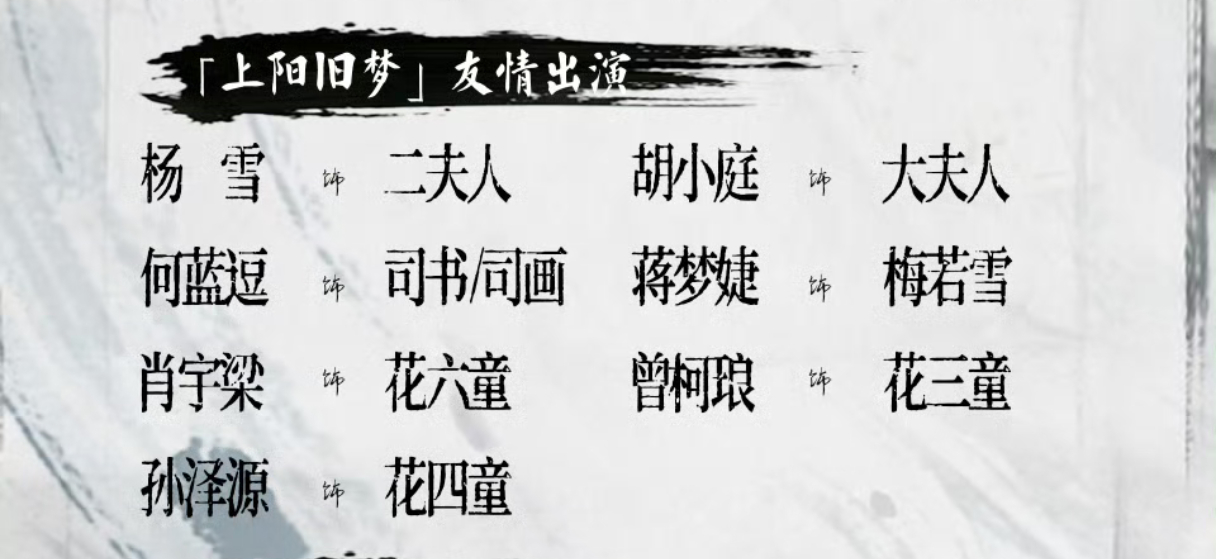 「上阳旧梦」友情出演
杨 雪 饰 二夫人 胡小庭 饰 大夫人
何蓝逗 饰 司书/司画 蒋梦婕 饰 梅若雪
肖宇梁 饰 花六童 曾柯琅 饰 花三童
孙泽源 饰 花四童